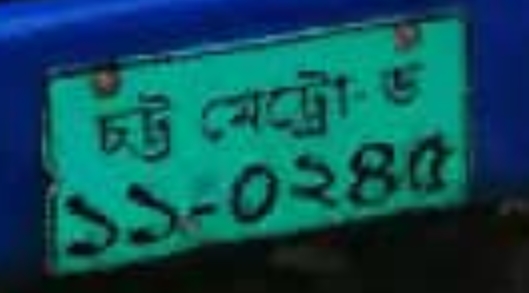 চট্ট মেট্রো-ড
১১-০২৪৫